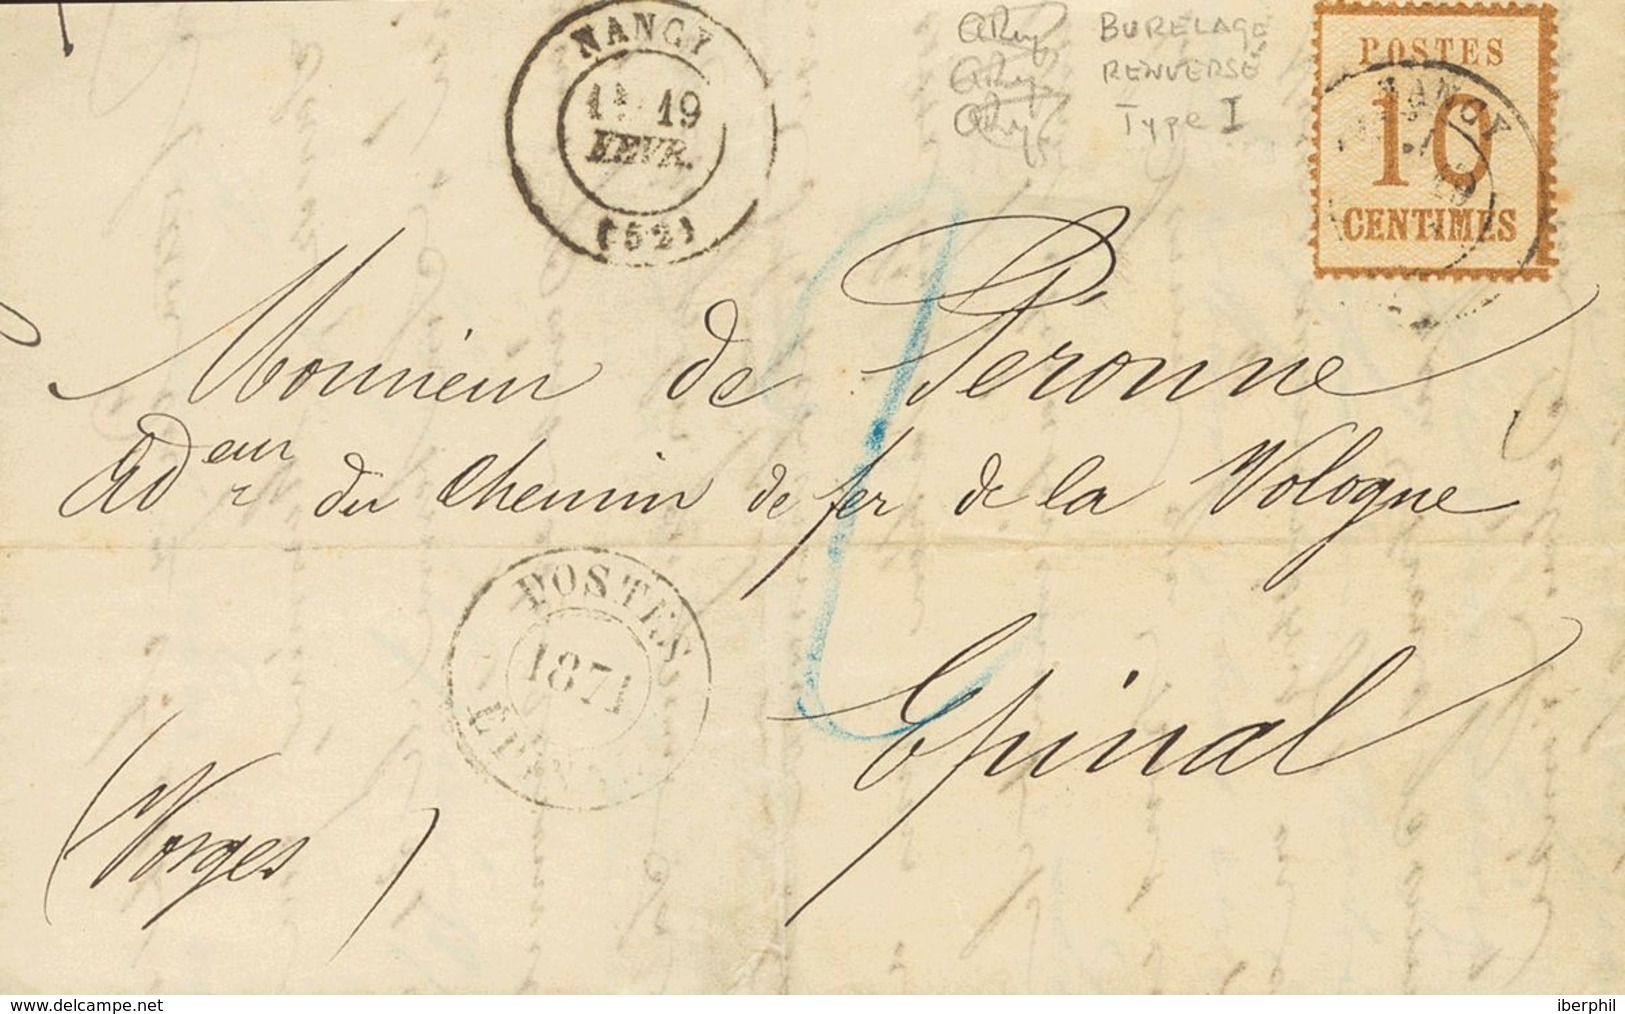 NANCY
19
FEVR.
(52)
BURELAGE
RENVERSÉ
Type I
POSTES
10
CENTIMES
NANCY
19
2
Monsieur de Péronne
Adeur du Chemin de fer de la Vologne
POSTES
1871
EPINAL
Epinal
(Vosges)
www.delcampe.net
iberphil